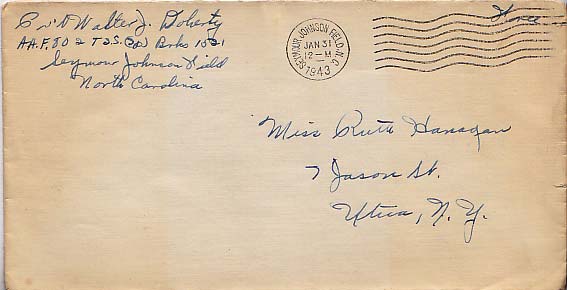 Pvt Walter J. Doherty
A.A.F. 802 T.S.S. Brks 1521
Seymour Johnson Field
North Carolina
SEYMOUR JOHNSON FIELD, N.C.
JAN 31
12-M
1943
Free
Miss Ruth Hanagan
7 Jason St.
Utica, N.Y.